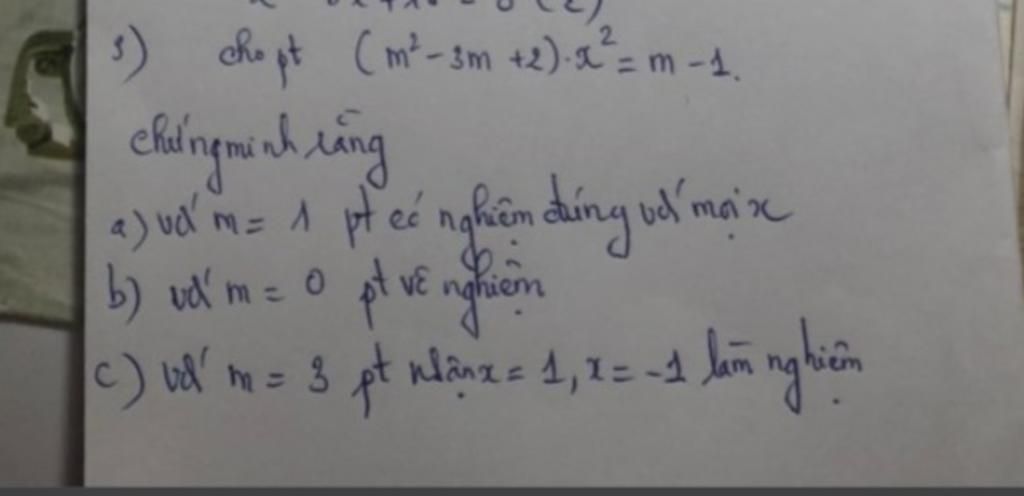 3) cho pt (m² - 3m + 2).x² = m - 1.
chứng minh rằng
a) với m = 1 pt có nghiệm đúng với mọi x
b) với m = 0 pt vô nghiệm
c) với m = 3 pt nhận x = 1, x = -1 làm nghiệm